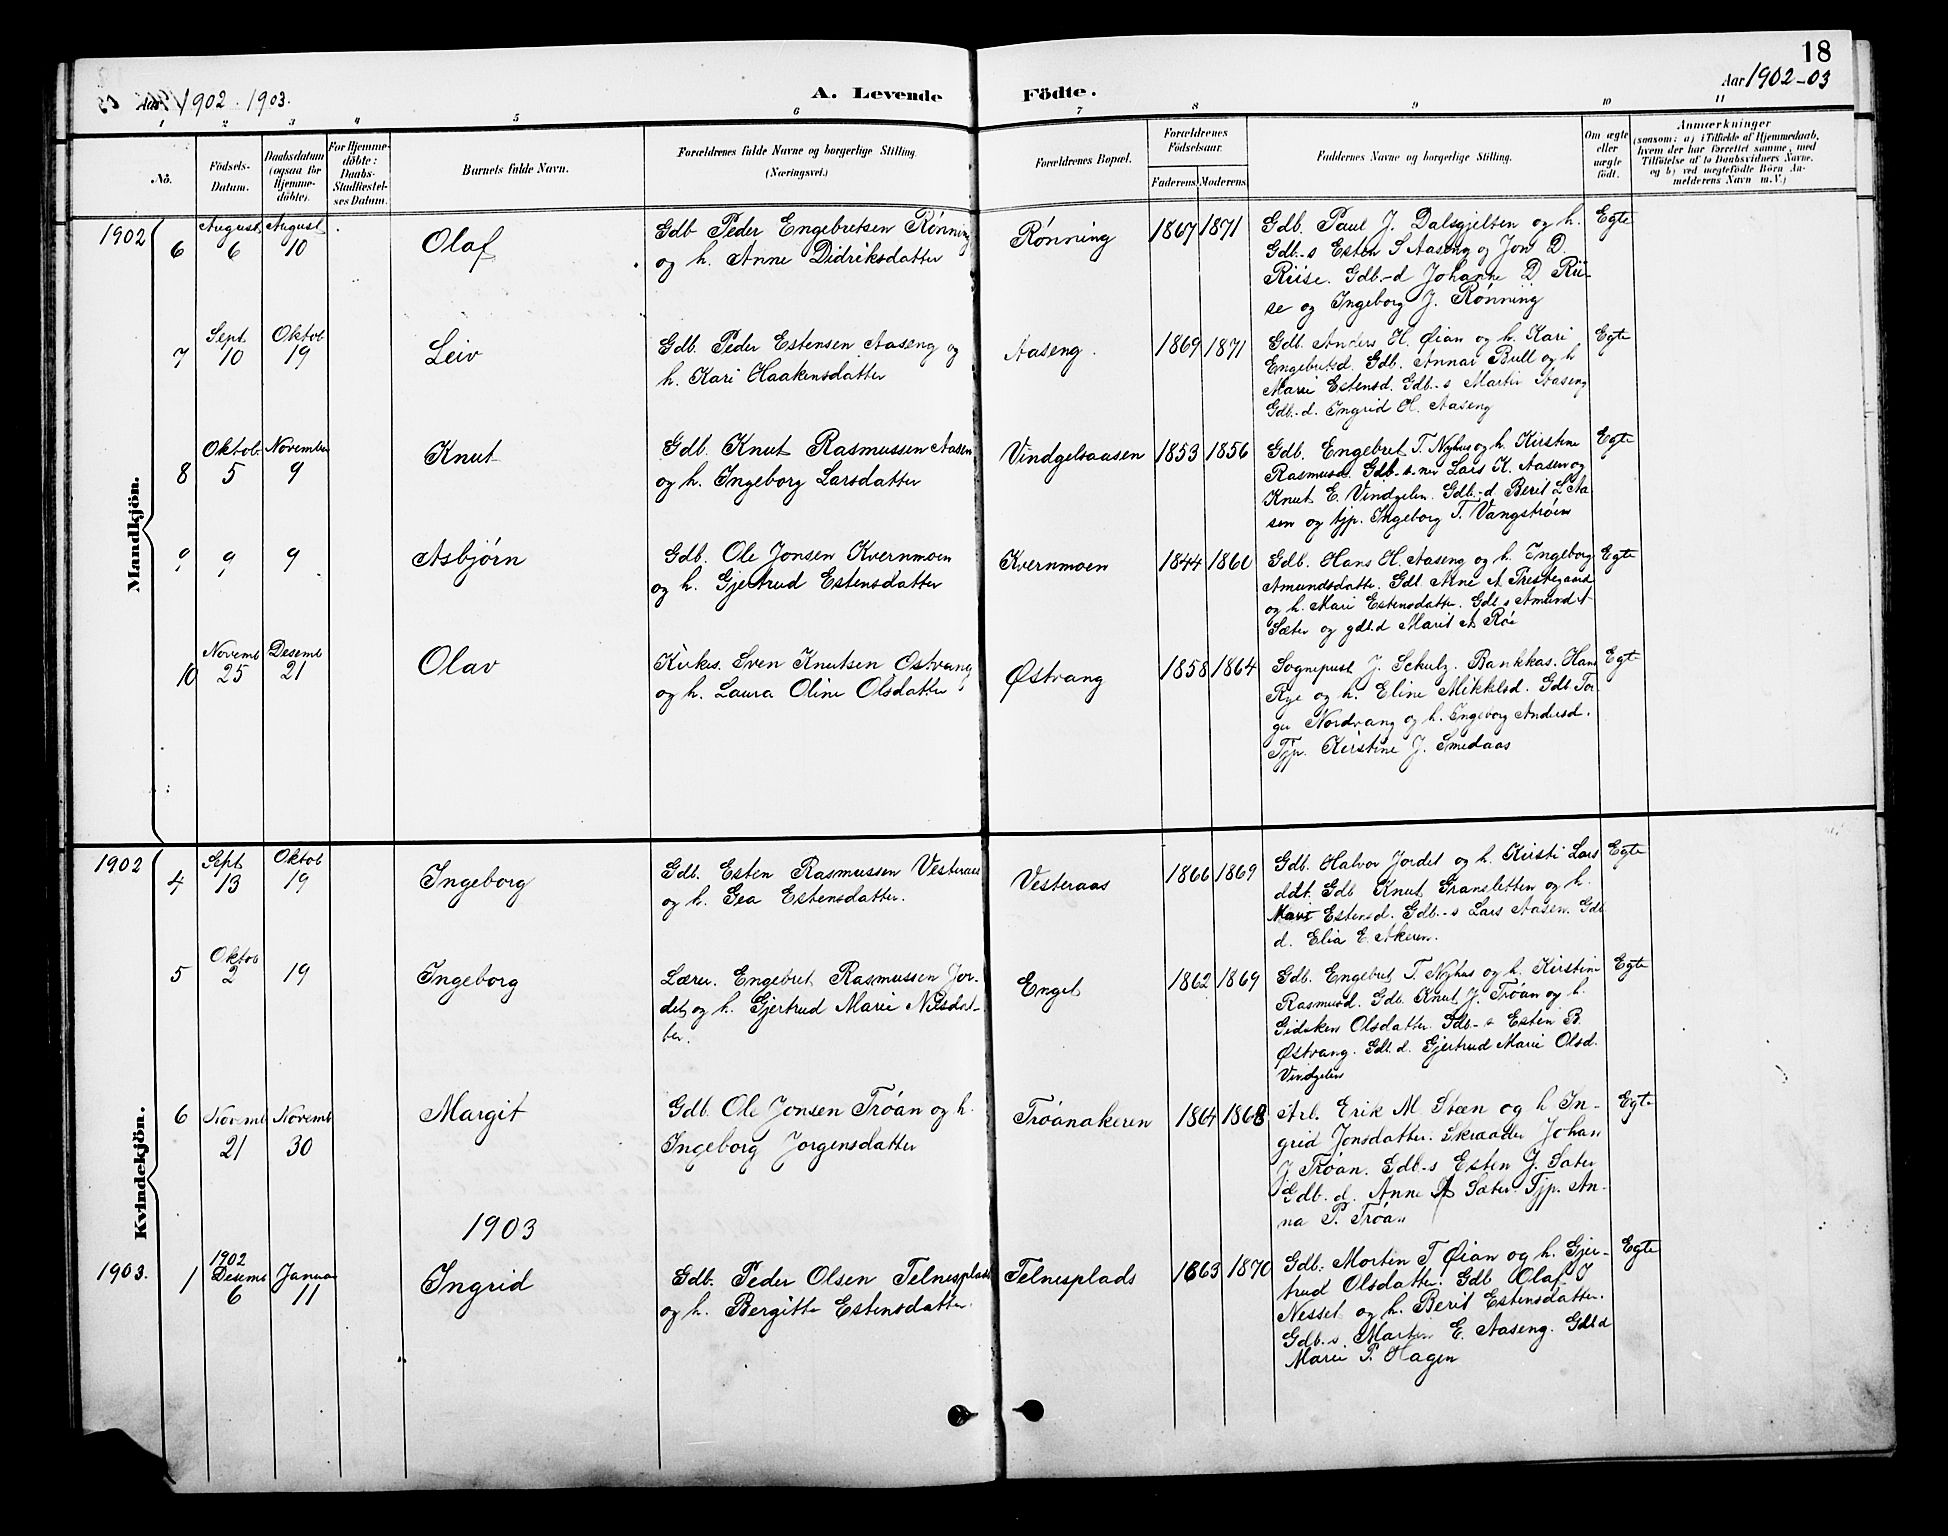 18
Aar 1902 . 1903.
A. Levende Födte.
Aar 1902-03
1 2 3 4 5 6 7 8 9 10 11
No.
Födsels-Datum.
Daabsdatum (ogsaa for Hjemme-døbte).
For Hjemme-døbte: Daabs-Stadfæstel-ses Datum.
Barnets fulde Navn.
Forældrenes fulde Navne og borgerlige Stilling.
(Næringsvei.)
Forældrenes Bopæl.
Forældrenes Födselsaar.
Faderens Moderens
Faddernes Navne og borgerlige Stilling.
Om ægte eller uægte født.
Anmærkninger
(saasom: a) i Tilfælde af Hjemmedaab,
hvem der har forrettet samme, med
Tilføielse af to Daabsvidners Navne,
og b) ved uægtefødte Börn An-
melderens Navn m. V.)
Mandkjön.
1902
6 August 6 August 10
Olaf
Gdb Peder Engebretsen Rønning
og h. Anne Didriksdatter
Rønning
1867 1871
Gdb. Paul J. Dalsgjelten og h.
Gdb.-s Esten S Aaseng og Jon D.
Riise. Gdb.-d Johanne D. Rii-
se og Ingeborg J. Rønning
Egte
7 Sept 10 Oktob 19
Leiv
Gdb. Peder Estensen Aaseng og
h. Kari Haakensdatter
Aaseng.
1869 1871
Gdb. Anders H. Øian og h. Kari
Engebretsd. Gdb. Annar Bull og h
Marie Estensd. Gdb.-s Martin Aaseng
Gdb.-d. Ingrid H. Aaseng
Egte
8 Oktob 5 November 9
Knut
Gdb. Knut Rasmussen Aasen
og h. Ingeborg Larsdatter
Vindgelsaasen
1853 1856
Gdb. Engebret T. Nyhus og h. Kirstine
Rasmusd. Gdb-s.ner Lars K. Aasen og
Knut E. Vindgelen. Gdb.-d Berit L Aa
sen og tjp. Ingeborg T. Vangstrøen
Egte
9 9 9
Asbjørn
Gdb. Ole Jonsen Kvernmoen
og h. Gjertrud Estensdatter
Kvernmoen
1844 1860
Gdb. Hans H. Aaseng og h. Ingeborg
Amundsdatter. Gdb. Arne A Prestegaard
og h. Mari Estensdatter. Gdb s Amund A
Sæter og gdb.d Marit A Røe
Egte
10 Novemb 25 Desemb 21
Olav
Kirkes. Sven Knutsen Østvang
og h. Laura Oline Olsdatter
Østvang
1858 1864
Sogneprest J. Schulz. Bankkas. Hans
Rye og h. Eline Mikkelsd. Gdb. Tor-
ger Nordvang og h. Ingeborg Andersd.
Tjp. Kirstine J. Smedaas
Egte
Kvindekjön.
1902
4 Sept 13 Oktob 19
Ingeborg
Gdb. Esten Rasmussen Vesteraas
og h. Gea Estensdatter.
Vesteraas
1866 1869
Gdb. Halvor Jordet og h. Kirsti Lars
ddt. Gdb Knut Gransletten og h.
Marit Estensd. Gdb.-s Lars Aasen. Gdb
d. Elia E. Akeren.
Egte
5 Oktob 2 19
Ingeborg
Lærer. Engebret Rasmussen Jor-
det og h. Gjertrud Marie Nilsdat-
ter.
Enget
1862 1869
Gdb. Engebret T. Nyhus og h. Kirstine
Rasmusd. Gdb. Knut J. Trøan og h.
Gidsken Olsdatter. Gdb-s Esten B.
Østvang. Gdb.d. Gjertrud Marie Olsd.
Vindgelen
Egte
6 Novemb 21 Novemb 30
Margit
Gdb. Ole Jonsen Trøan og h.
Ingeborg Jorgensdatter
Trøanakeren
1864 1868
Arb. Erik M. Støen og h In-
grid Jonsdatter. Skrædder Johan
J. Trøan. Gdb.-s Esten J. Sæter
Gdb.d. Anne A Sæter. Tjp. An-
na P. Trøan
Egte
1903
1903. 1 1902 Desemb 6 Januar 11
Ingrid
Gdb. Peder Olsen Telnesplads
og h. Bergitte Estensdatter.
Telnesplads
1863 1870
Gdb. Morten T Øian og h. Gjer-
trud Olsdatter. Gdb Olaf J
Nesset og h. Berit Estensdatter.
Gdb.s. Martin E. Aaseng. Gdb d
Marie P. Hagen
Egte